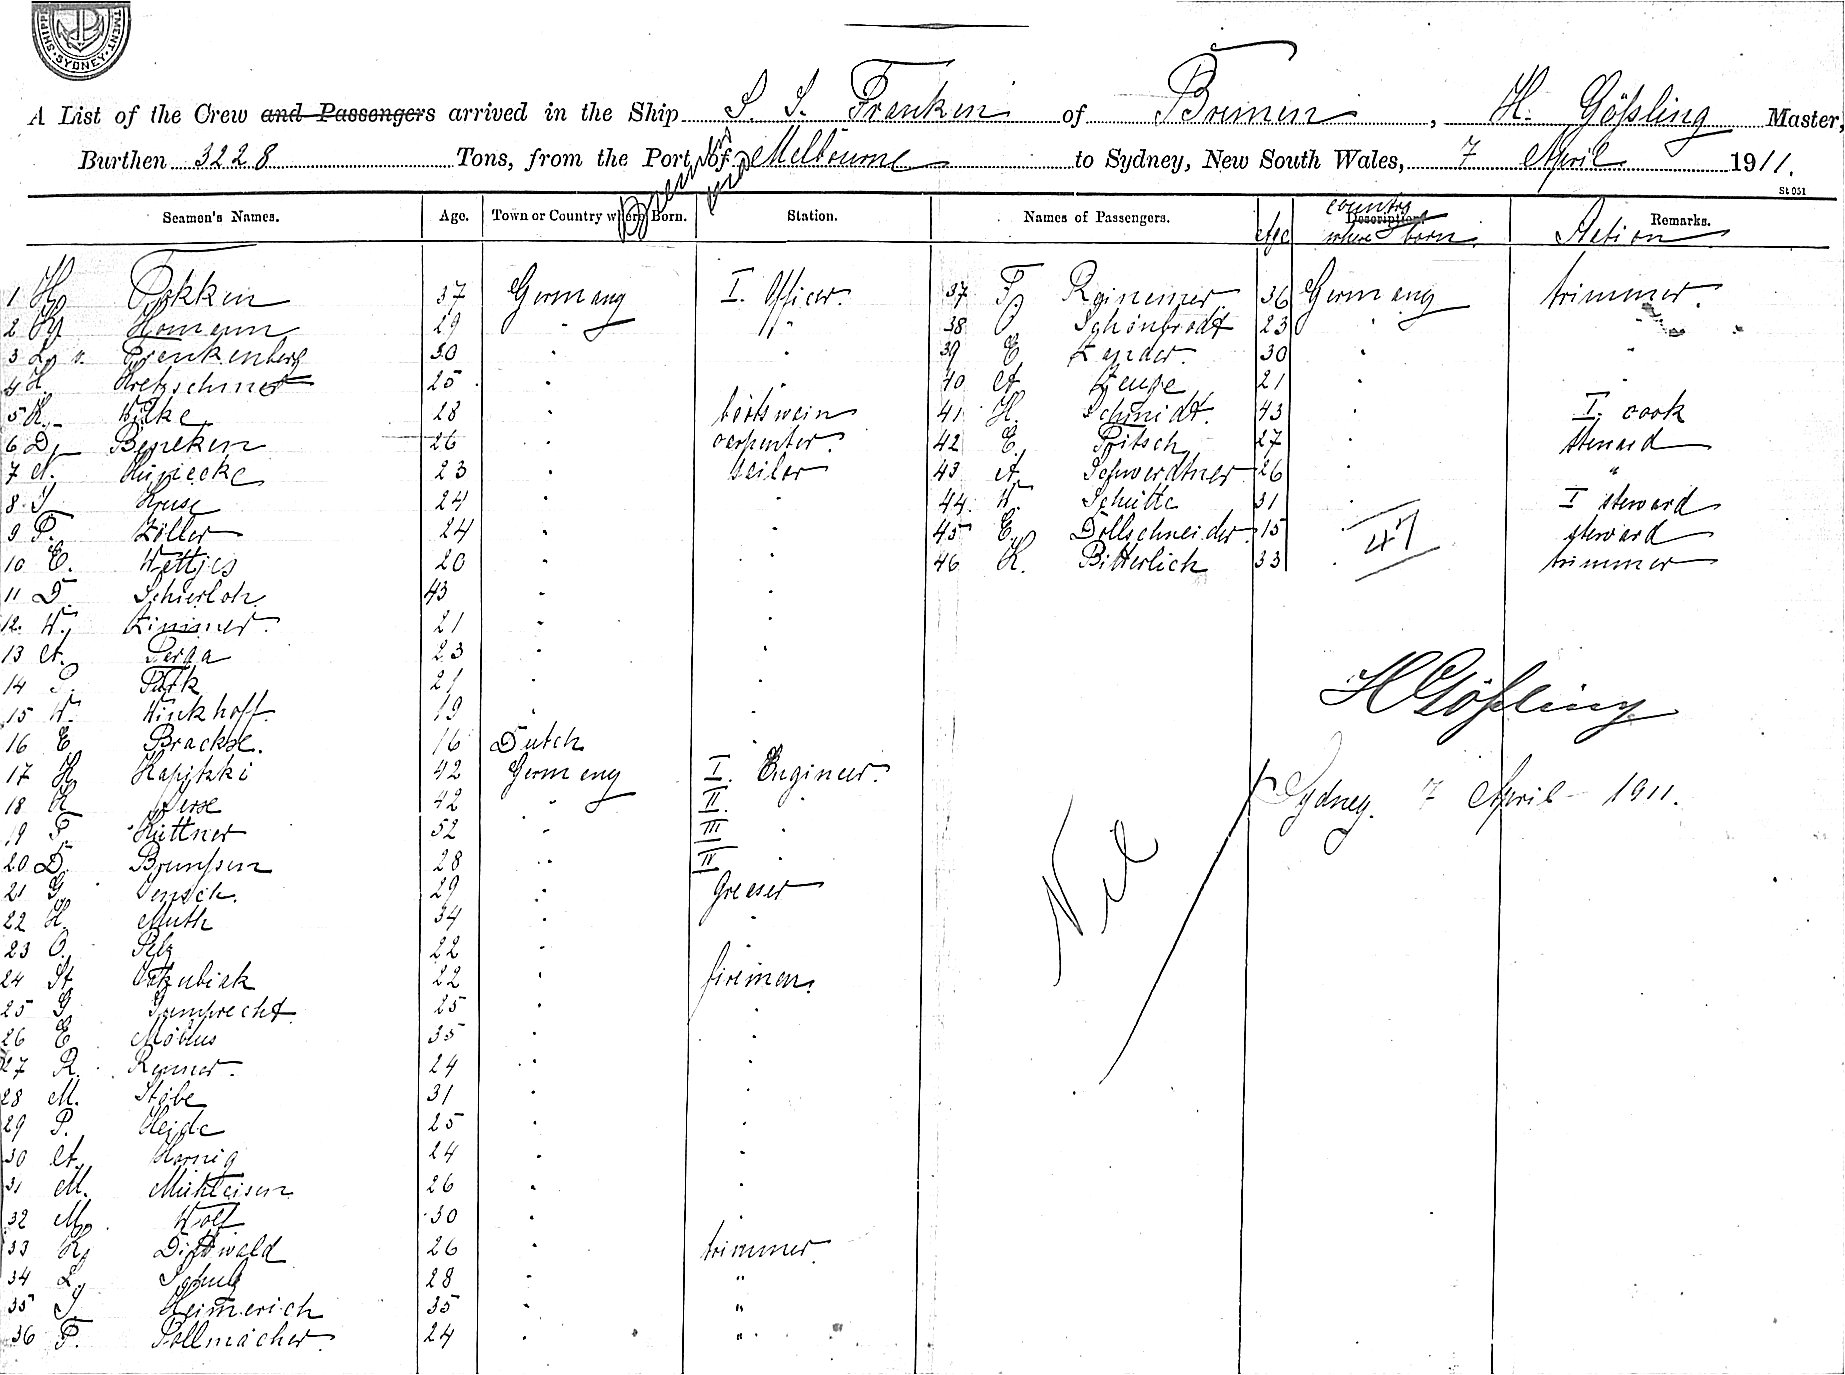 SHIPP TMENT · SYDNEY ·
A List of the Crew and Passengers arrived in the Ship S. S. Franken of Bremen, H. Gößling Master,
Burthen 3228 Tons, from the Port of Bremen via Melbourne to Sydney, New South Wales, 7 April 1911.
St 051
Seamen's Names. Age. Town or Country where Born. Station. Names of Passengers. Age Description country where born Remarks. Station
1 H. Fokken 37 Germany I. Officer. 37 F. Reinemer 36 Germany trimmer.
2 H. Homann 29 " " 38 O. Schönbrodt 23 "
3 L. v. Frenkenberg 30 " " 39 E. Zander 30 " "
4 H. Kretzschmer 25 " " 40 A. Zeuge 21 " "
5 K. Wilke 28 " bootswein 41 H. Schmidt 43 " I. cook
6 D. Beneken 26 " carpenter. 42 E. Pritsch 27 " steward
7 A. Hünecke 23 " seiler 43 A. Schwerdtner 26 " "
8 J. Kruse 24 " " 44 W. Schütte 31 " I steward
9 F. Zöller 24 " " 45 E. Döllschneider 15 steward
10 E. Wettjes 20 " " 46 K. Bitterlich 33 " trimmer
47
11 D. Schierloh 43 " "
12. W. Zimmer 21 " "
13 A. Perga 23 " "
14 Park 21 " "
15 W. Winkhoff 19 " "
16 E. Brackse. 16 Dutch "
17 H. Kapitzki 42 Germany I. Engineer.
18 H. 42 " II. "
19 F. Hüttner 52 " III "
20 D. Brunssen 28 " IV "
21 G. Jensch. 29 " Greaser
22 H. Muth 34 " "
23 O. Pelz 22 " "
24 St. Jakubiak 22 " firemen.
25 G. Gumprecht 25 " "
26 E. Möbius 35 " "
27 R. Renner. 24 " "
28 M. Stöbe 31 " "
29 P. Heide 25 " "
30 A. Hornig 24 " "
31 M. Mühleisen 26 " "
32 M. Wolf 30 " "
33 K. Dittwald 26 " trimmer.
34 L. Schulz 28 " "
35 J. Heimerich 35 " "
36 F. Pollmächer 24 " "
H Gößling
Sydney. 7 April 1911.
Nil